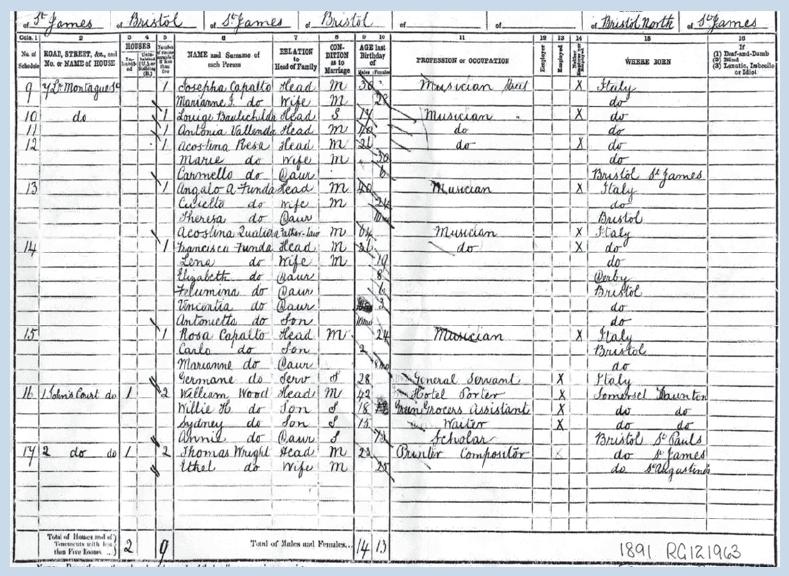 of St James of Bristol of St James of Bristol of of of Bristol North of St James
Cols. 1 2 3 4 5 6 7 8 9 10 11 12 13 14 15 16
No. of Schedule ROAD, STREET, &c., and No. or NAME of HOUSE HOUSES NAME and Surname of each Person RELATION to Head of Family CONDITION as to Marriage AGE last Birthday of Males Females PROFESSION or OCCUPATION Employer Employed WHERE BORN If (1) Deaf-and-Dumb (2) Blind (3) Lunatic, Imbecile or Idiot
9 Montague 1 Josepha Capalto Head M 30 Musician Street X Italy
Marianne do Wife M 28 do
10 do 1 Head S 19 Musician X do
11 1 Antonia Head M 40 do do
12 1 Acostina Resa Head M do X do
Marie do Wife M 30 do
Carmello do Daur 6 Bristol St James
13 1 Angalo A Funda Head M 40 Musician X Italy
do Wife M 24 do
Theresa do Daur Bristol
Acostina Father-law M 64 Musician X Italy
14 1 Francisca Funda Head M do X do
Lena do Wife M do
Elizabeth do Daur 8 Derby
Filumina do Daur 6 Bristol
do Daur 3 do
Antonietta do Son do
15 1 Rosa Capalto Head M 24 Musician X Italy
Carlo do Son 2 Bristol
Marianne do Daur do
Germane do Serv S 28 General Servant X Italy
16 1 John's Court do 1 2 William Wood Head M 42 Hotel Porter X Somerset Taunton
Willie H do Son S 18 Green Grocers Assistant X do do
Sydney do Son S 15 Waiter X do do
Annie do Daur S Scholar Bristol St Pauls
17 2 do do 1 2 Thomas Wright Head M 23 Printer Compositor X do St James
Ethel do Wife M 25 do St Augustines
Total of Houses and of Tenements with less than Five Rooms 2 9 Total of Males and Females... 14 13
1891 RG121963